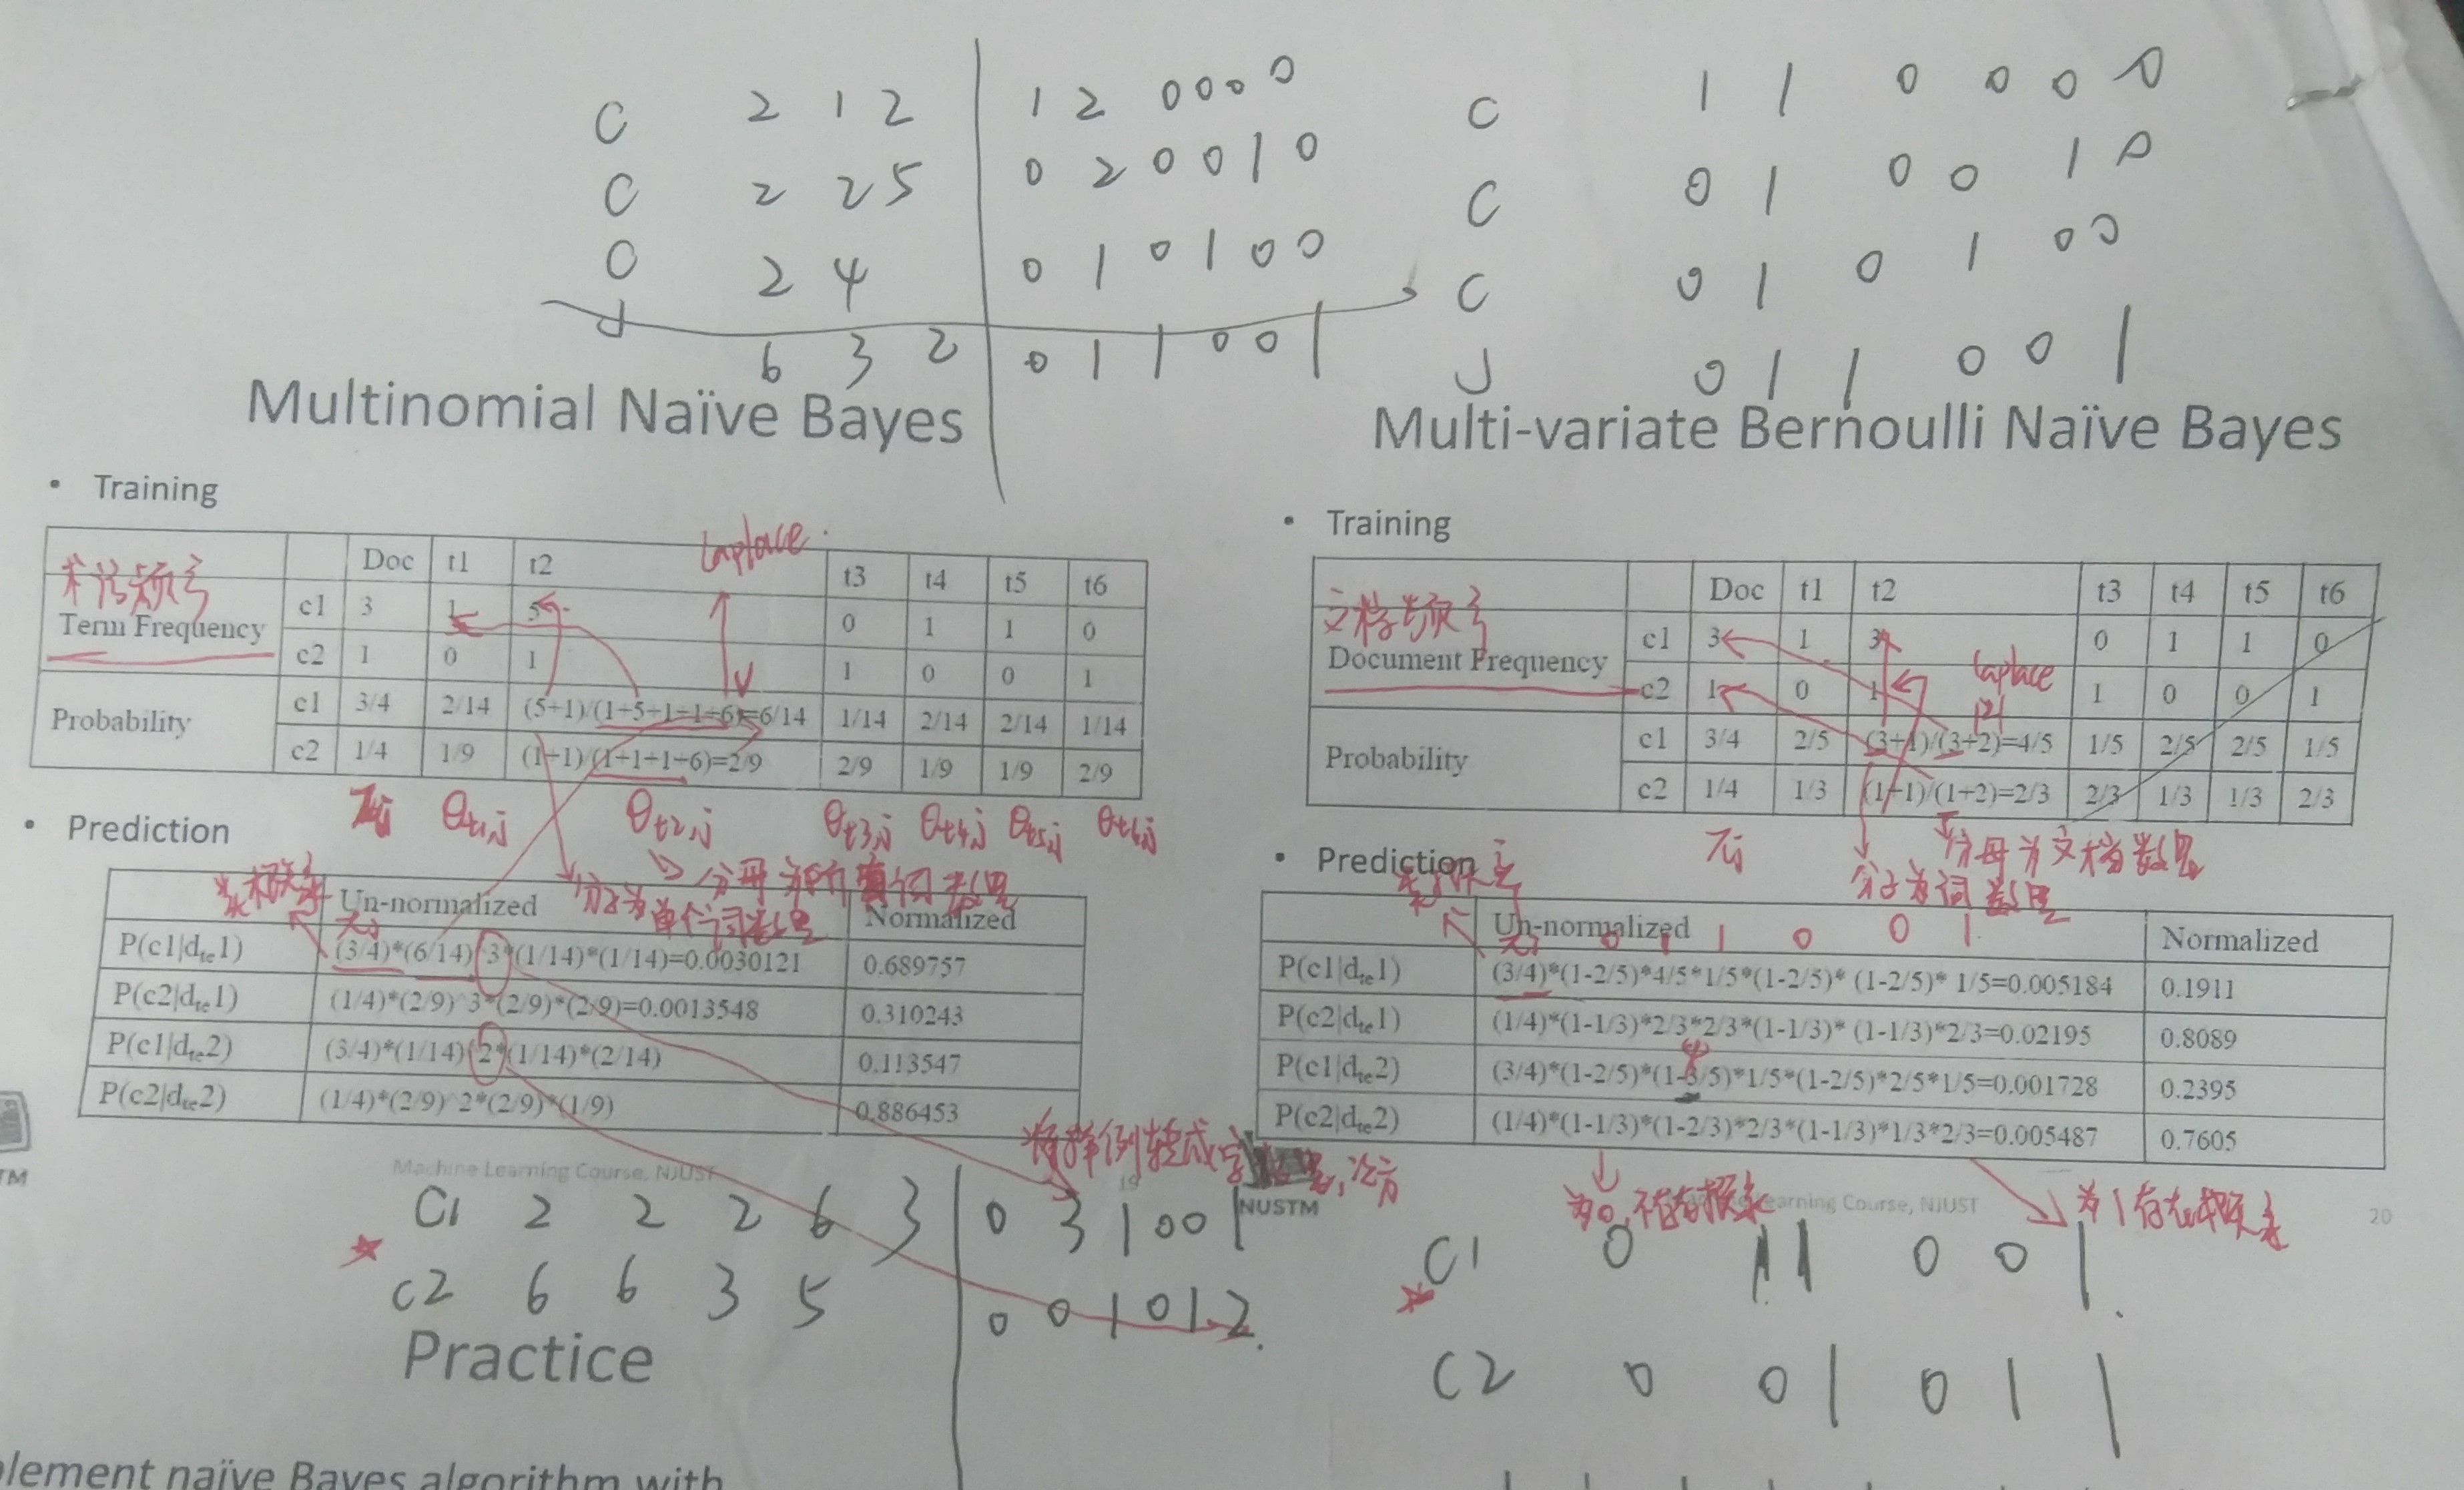 C 2 1 2 1 2 0 0 0 0
C 2 2 5 0 2 0 0 1 0
C 2 4 0 1 0 1 0 0
J 6 3 2 0 1 1 0 0 1
Multinomial Naïve Bayes
• Training
Laplace
Doc t1 t2 t3 t4 t5 t6
Term Frequency
c1 3 1 5 0 1 1 0
c2 1 0 1 1 0 0 1
Probability
c1 3/4 2/14 (5+1)/(1+5+1+1+6)=6/14 1/14 2/14 2/14 1/14
c2 1/4 1/9 (1+1)/(1+1+1+6)=2/9 2/9 1/9 1/9 2/9
πj θt1,j θt2,j θt3,j θt4,j θt5,j θt6,j
• Prediction
分子为单个词数量
Un-normalized Normalized
P(c1|dte1) (3/4)*(6/14)^3*(1/14)*(1/14)=0.0030121 0.689757
P(c2|dte1) (1/4)*(2/9)^3*(2/9)*(2/9)=0.0013548 0.310243
P(c1|dte2) (3/4)*(1/14)^2*(1/14)*(2/14) 0.113547
P(c2|dte2) (1/4)*(2/9)^2*(2/9)*(1/9) 0.886453
Machine Learning Course, NJUST
19
NUSTM
C1 2 2 2 6 3 0 3 1 0 0 1
C2 6 6 3 5 0 0 1 0 1 2
Practice
naïve Bayes algorithm with
C 1 1 0 0 0 0
C 0 1 0 0 1 0
C 0 1 0 1 0 0
J 0 1 1 0 0 1
Multi-variate Bernoulli Naïve Bayes
• Training
Doc t1 t2 t3 t4 t5 t6
文档频号
Document Frequency
c1 3 1 3 0 1 1 0
c2 1 0 1 1 0 0 1
Laplace
Probability
c1 3/4 2/5 (3+1)/(3+2)=4/5 1/5 2/5 2/5 1/5
c2 1/4 1/3 (1+1)/(1+2)=2/3 2/3 1/3 1/3 2/3
πj
分母为文档数量
分子为词数量
• Prediction
Un-normalized Normalized
0 1 1 0 0 1
P(c1|dte1) (3/4)*(1-2/5)*4/5*1/5*(1-2/5)* (1-2/5)* 1/5=0.005184 0.1911
P(c2|dte1) (1/4)*(1-1/3)*2/3*2/3*(1-1/3)* (1-1/3)*2/3=0.02195 0.8089
4
P(c1|dte2) (3/4)*(1-2/5)*(1-3/5)*1/5*(1-2/5)*2/5*1/5=0.001728 0.2395
P(c2|dte2) (1/4)*(1-1/3)*(1-2/3)*2/3*(1-1/3)*1/3*2/3=0.005487 0.7605
earning Course, NJUST
20
C1 0 1 1 0 0 1
C2 0 0 1 0 1 1